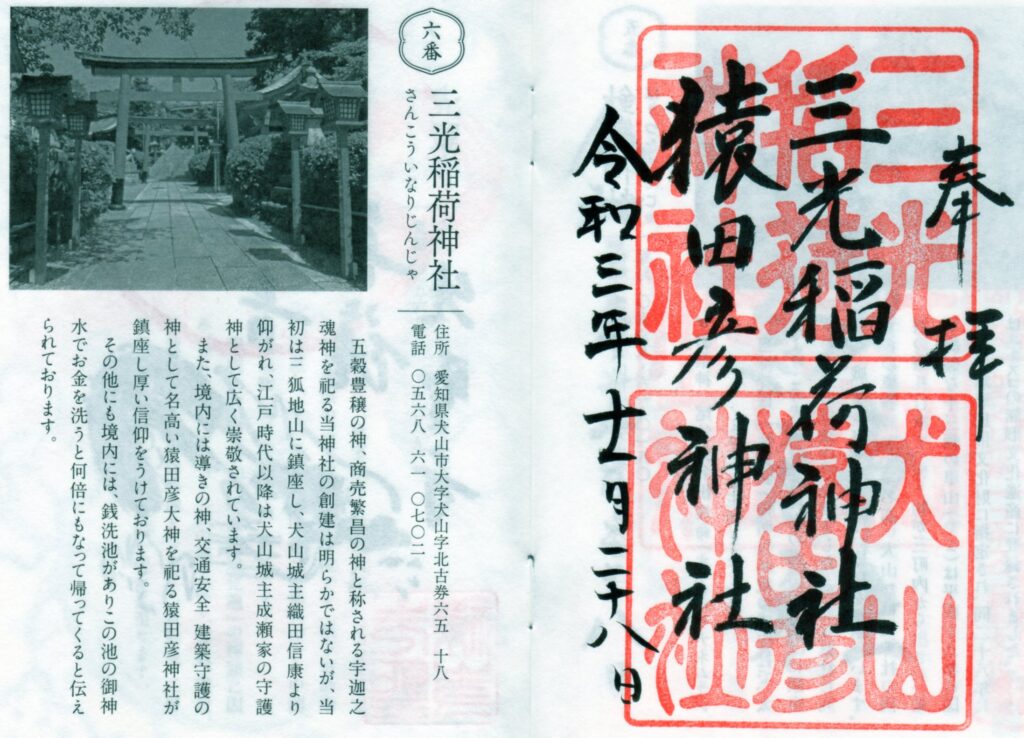 奉拝
三光稲荷神社
猿田彦神社
令和三年十一月二十八日
三光
稲荷
神社
犬山
猿田彦
神社
六番
三光稲荷神社
さんこういなりじんじゃ
住所 愛知県犬山市大字犬山字北古券六五 十八
電話 〇五六八 六一 〇七〇二
五穀豊穣の神、商売繁昌の神と称される宇迦之
魂神を祀る当神社の創建は明らかではないが、当
初は三狐地山に鎮座し、犬山城主織田信康より
仰がれ、江戸時代以降は犬山城主成瀬家の守護
神として広く崇敬されています。
また、境内には導きの神、交通安全 建築守護の
神として名高い猿田彦大神を祀る猿田彦神社が
鎮座し厚い信仰をうけております。
その他にも境内には、銭洗池がありこの池の御神
水でお金を洗うと何倍にもなって帰ってくると伝え
られております。